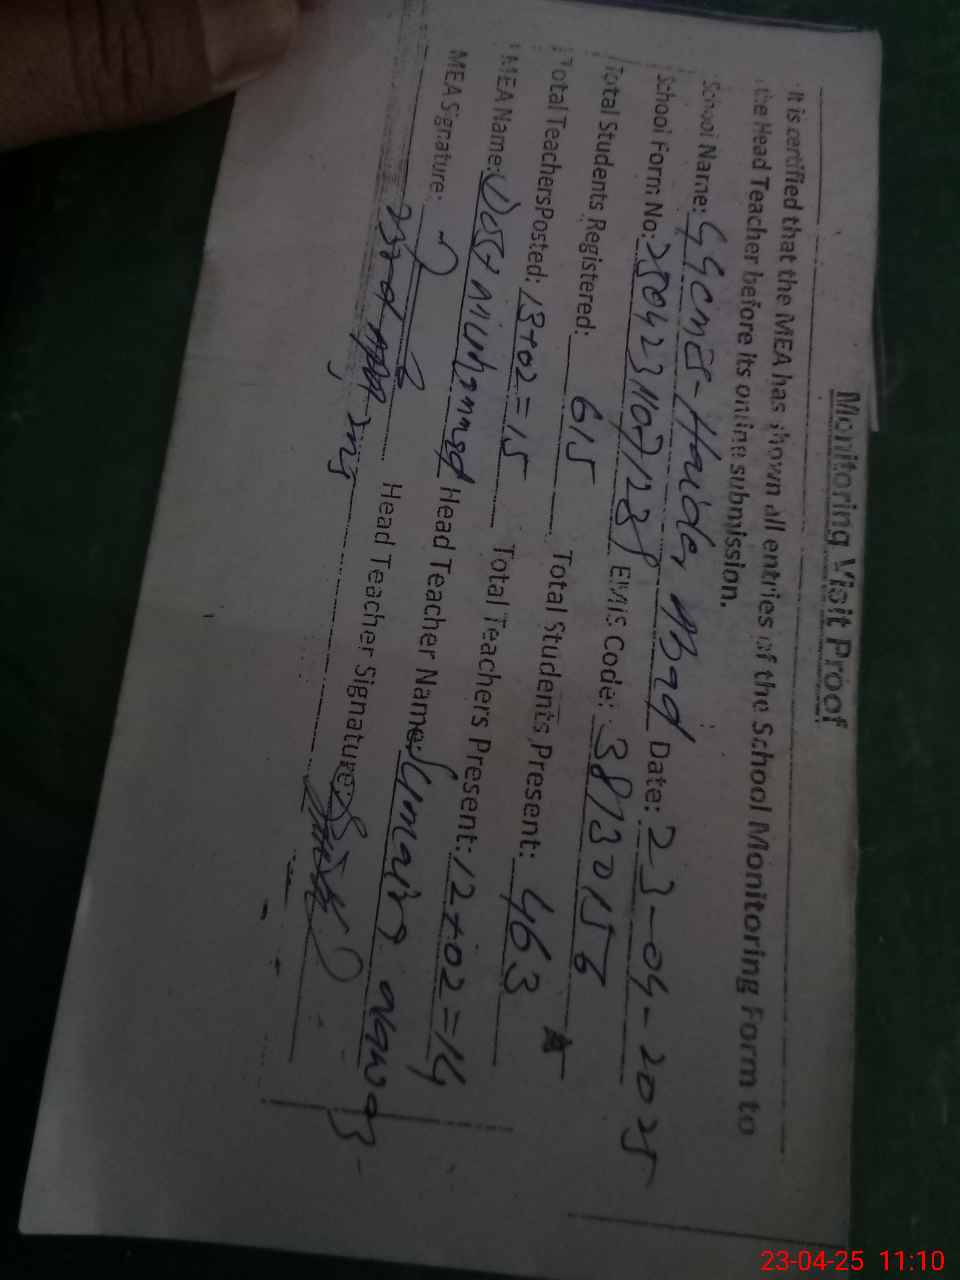 Monitoring Visit Proof
It is certified that the MEA has shown all entries of the School Monitoring Form to
the Head Teacher before its online submission.
School Name: GGCMES-Haider Mbad Date: 23-04-2025
School Form No: 250423110712 EMIS Code: 38130156
Total Students Registered: 615 Total Students Present: 463
Total TeachersPosted: 13+02=15 Total Teachers Present: 12+02=14
MEA Name: Dost Muhammad Head Teacher Name: Sumaira
MEA Signature: Head Teacher Signature:
23-04-25 11:10